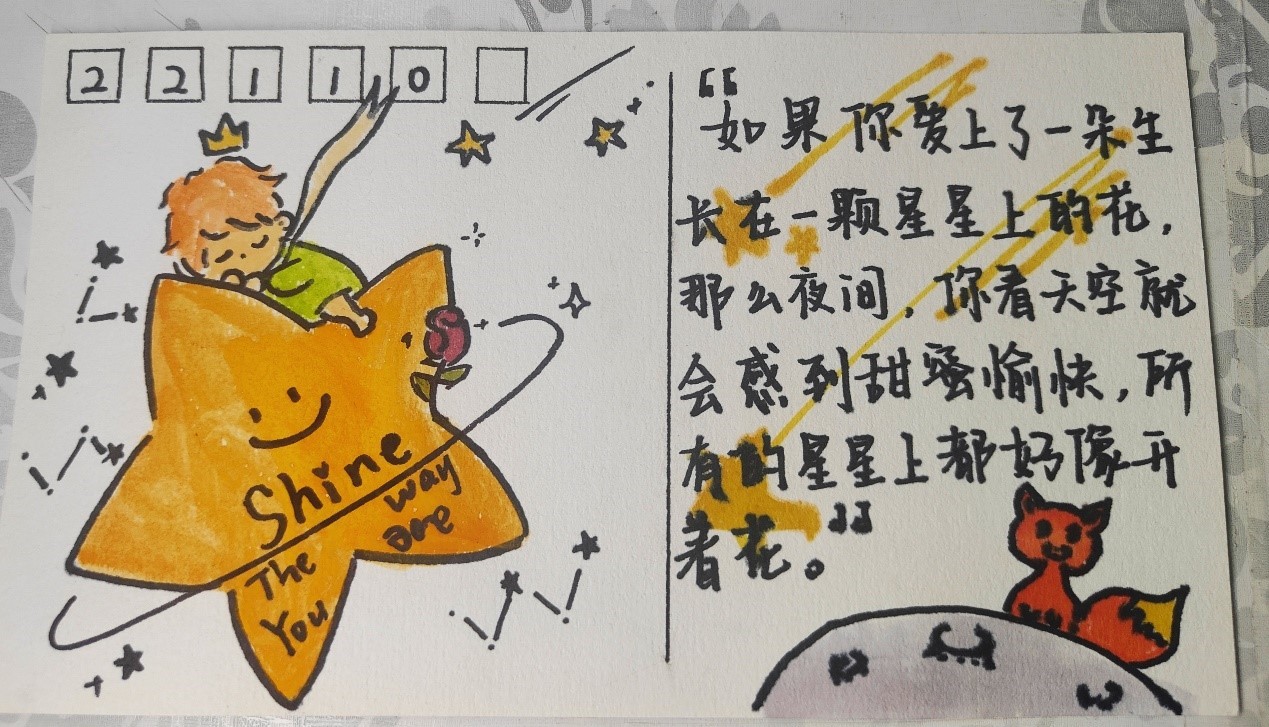 22110
Shine
The way
You are
“如果你爱上了一朵生
长在一颗星星上的花，
那么夜间，你看天空就
会感到甜蜜愉快，所
有的星星上都好像开
着花。”